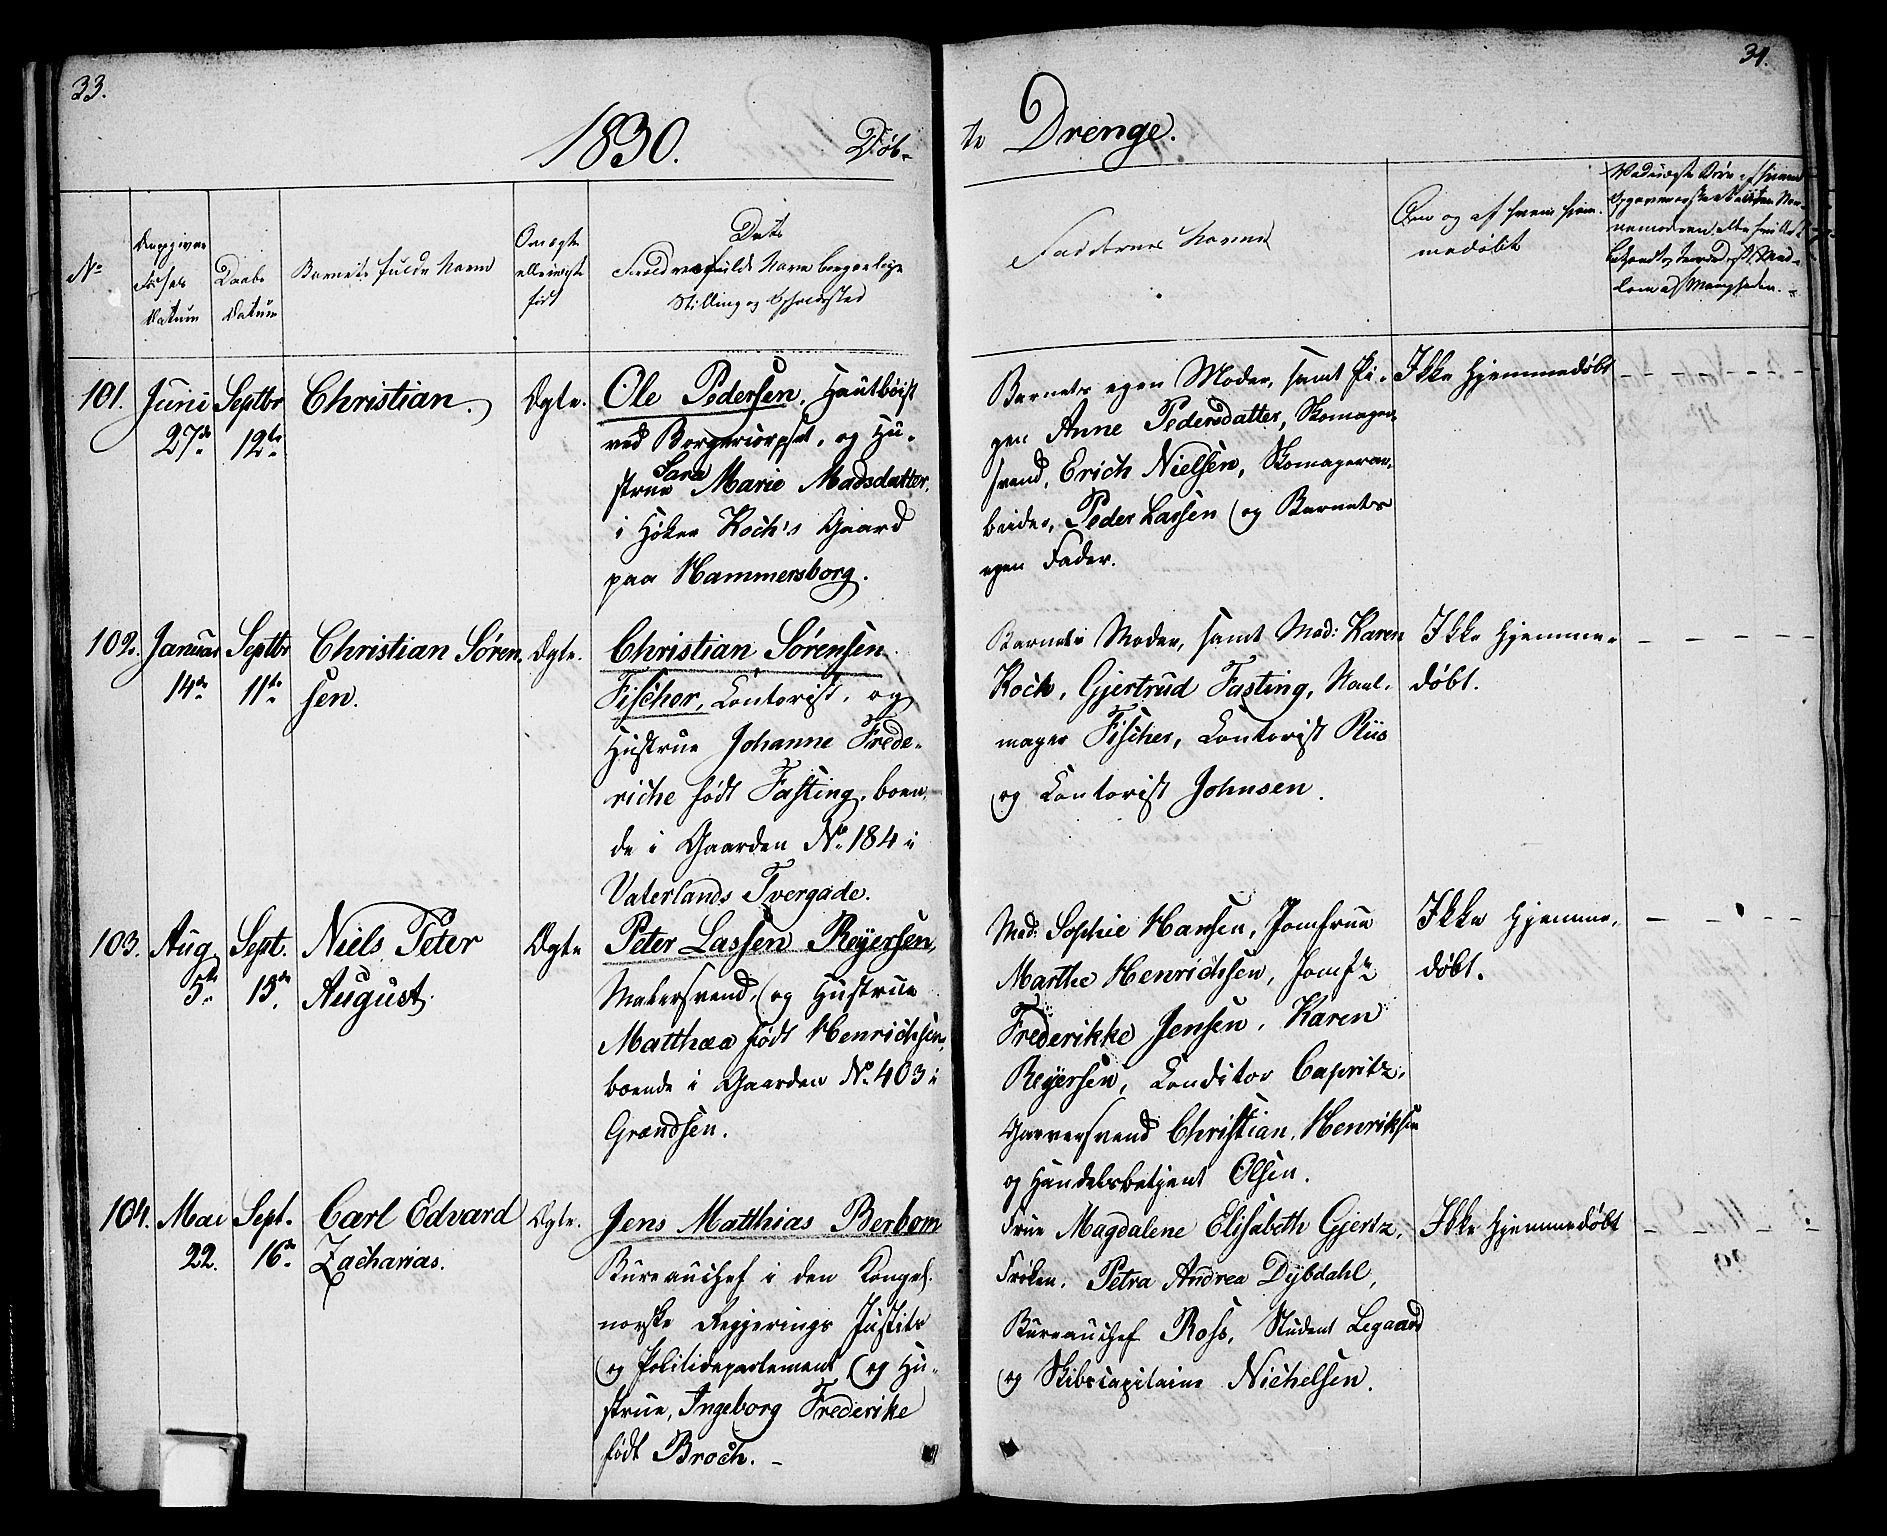 33.
34.
1830. Døb-
te Drenge.
No
Opgiven
Fødsels
Datum
Daabs
Datum
Barnets fulde Navn
Om ægte
eller uægte
født
Dets
Forældres fulde Navn borgerlige
Stilling og Opholdssted
Faddernes Navne
Om og af hvem hjem-
medøbt
101.
Juni
27de
Septbr
12te
Christian.
Ægte.
Ole Pedersen, Hautboist
ved Borgercorpset, og Hu-
strue Sara Marie Madsdatter,
i Høker Koch's Gaard
paa Hammersborg.
Barnets egen Moder, samt Pi-
gen Anne Pedersdatter, Skomager-
svend, Erich Nielsen, Skomagerar-
beider, Peder Lassen og Barnets
egen Fader.
Ikke Hjemmedøbt
102.
Januar
14de
Septbr
11te
Christian Søren-
sen.
Ægte.
Christian Sørensen
Fischer, Contorist, og
Hustrue Johanne Frede-
riche født Fasting, boen-
de i Gaarden No 184 i
Vaterlands Tvergade.
Barnets Moder, samt Mad: Karen
Koch, Gjertrud Fasting, Naal-
mager Fischer, Contorist Riis
og Contorist Johnsen.
Ikke Hjemme-
døbt.
103.
Aug
5te
Sept.
13de
Niels Peter
August.
Ægte
Peter Lassen Reÿersen,
Malersvend, og Hustrue
Matthæa født Henrichsen,
boende i Gaarden No. 403 i
Grændsen.
Mad: Sophie Hansen, Jomfrue
Marthe Henrichsen, Jomfr
Frederikke Jensen, Karen
Reÿersen, Conditor Capritz,
Garversvend Christian Henriksen
og Handelsbetjent Olsen.
Ikke Hjemme-
døbt.
104.
Mai
22.
Sept.
16de
Carl Edvard
Zacharias.
Ægte.
Jens Matthias Berbom
Bureauchef i den Kongel.
norske Regjerings Justits
og Politidepartement og Hu-
strue, Ingeborg Frederike
født Broch. -
Frue Magdalene Elisabeth Gjertz,
Frøken, Petra Andrea Dÿbdahl,
Bureauchef Ross, Student Legaard
og Skibscapitaine Nichelsen.
Ikke Hjemmedøbt